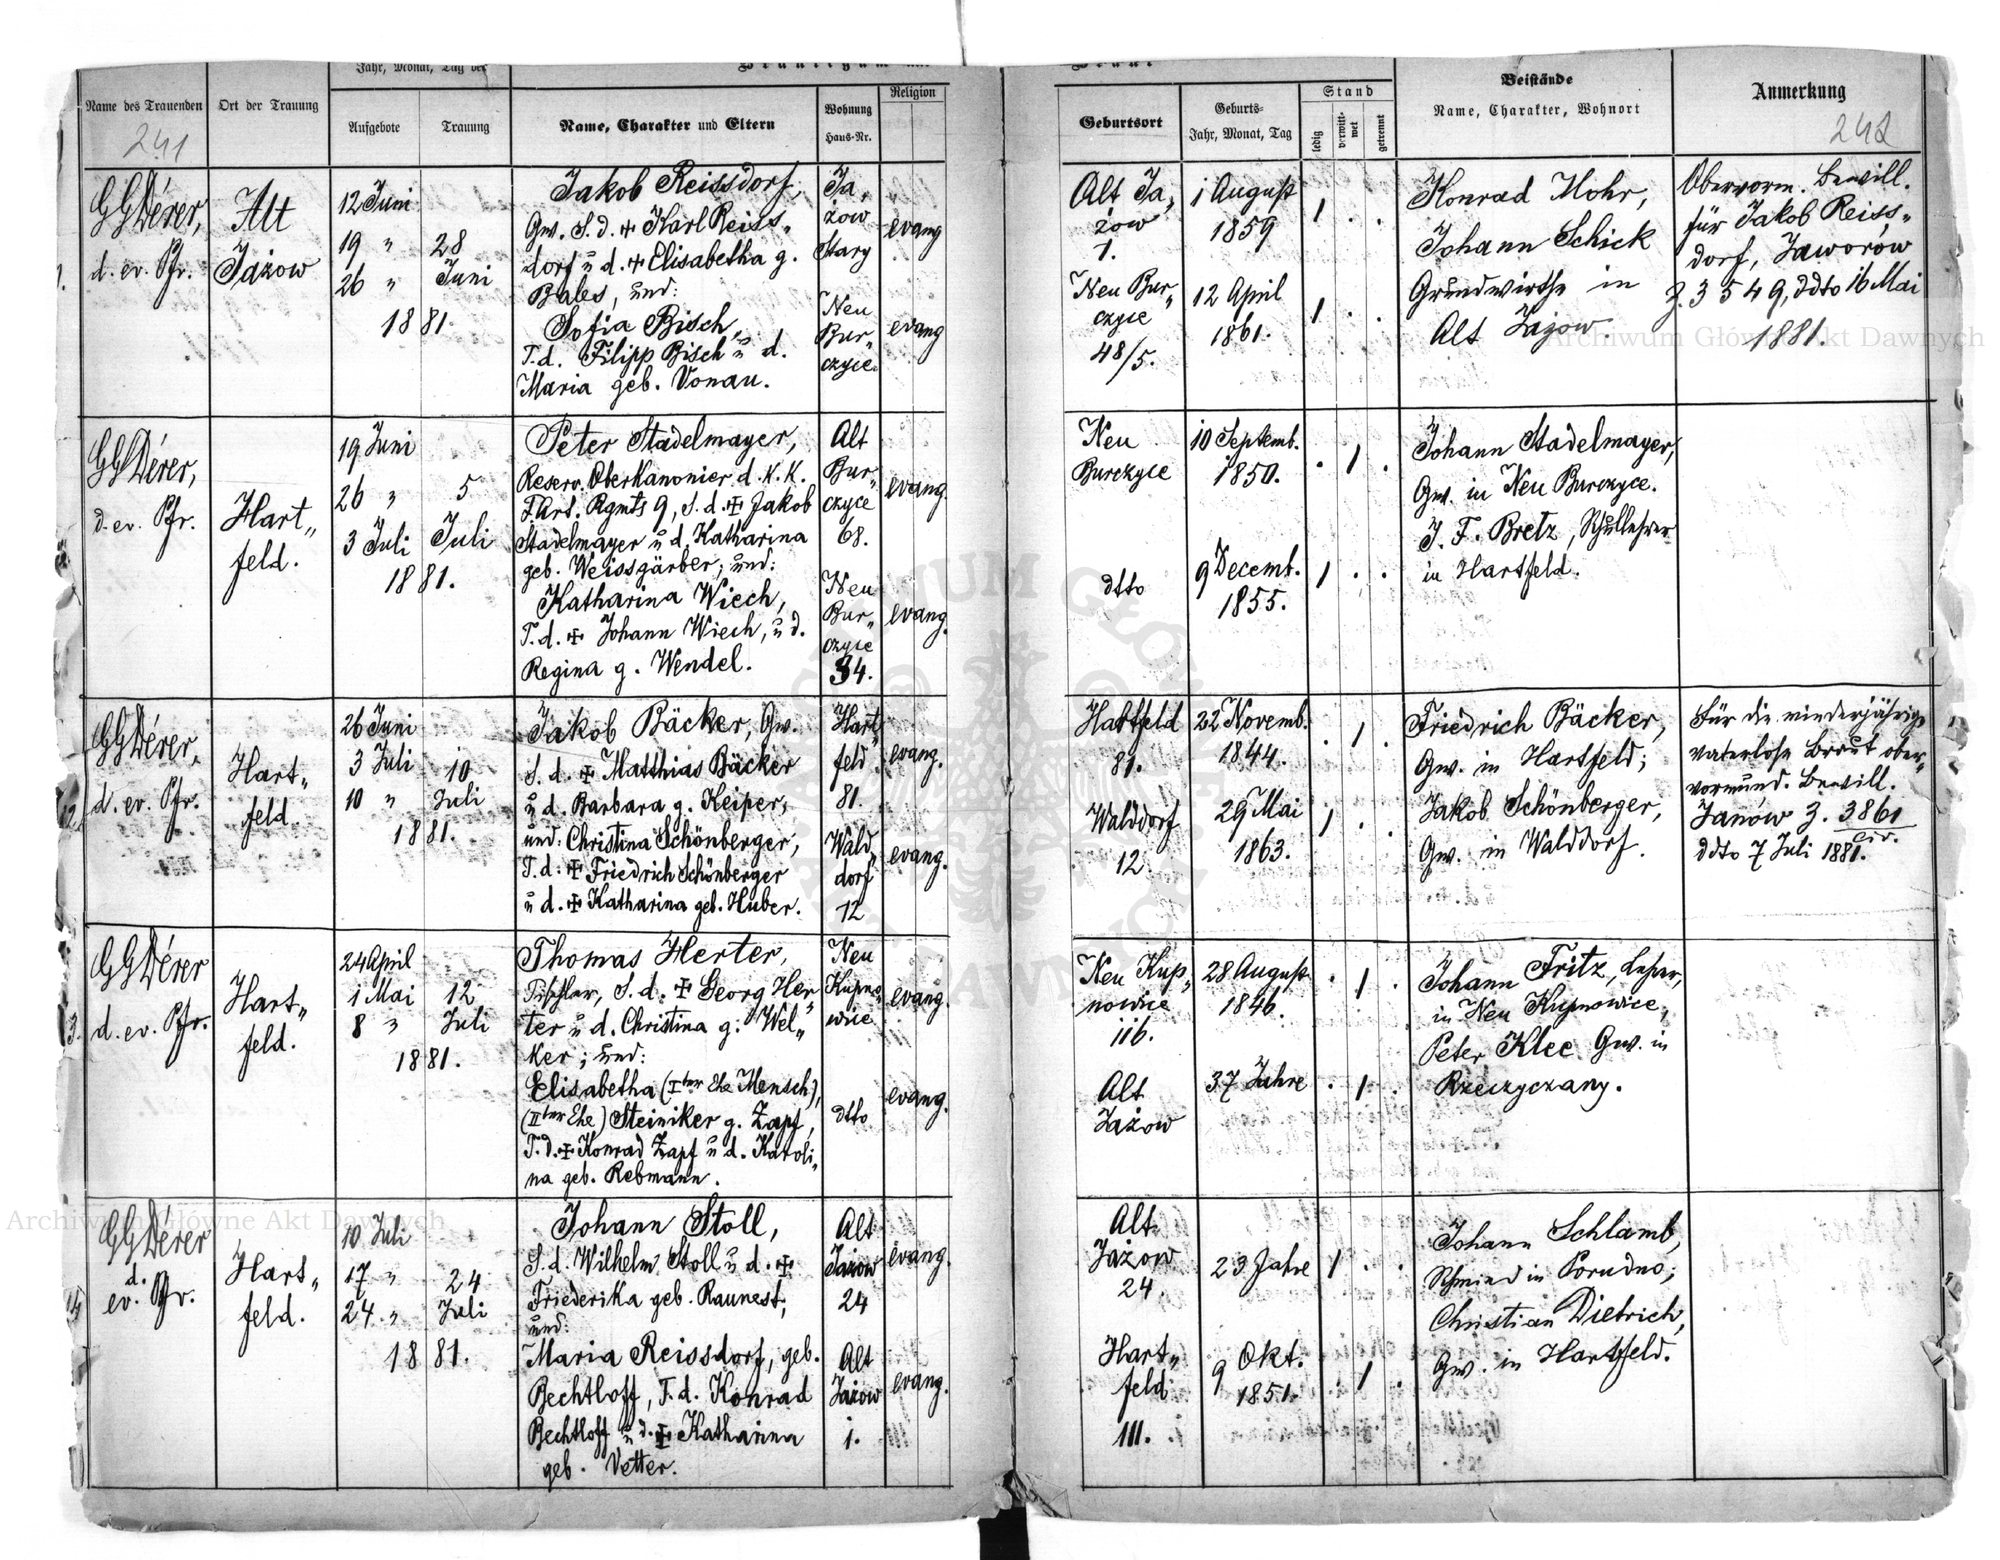 Jahr, Monat, Tag der
Name des Trauenden
Ort der Trauung
Aufgebote
Trauung
Name, Charakter und Eltern
Wohnung
Haus-Nr.
Religion
241
GGDérer,
d. ev. Pfr.
Alt
Jażow
12 Juni
19 " 28
26 " Juni
1881.
Jakob Reissdorf,
Gw. S. d. ✝ Karl Reiss„
dorf u d. ✝ Elisabetha g.
Bales, und:
Sofia Bisch,
T. d. Filipp Bisch u d.
Maria geb. Vonau.
Ja„
żow
Stary
Neu
Bur„
czyce
evang
evang
GGDérer,
d. ev. Pfr.
Hart„
feld.
19 Juni
26 " 5
3 Juli Juli
1881.
Peter Stadelmayer,
Reserv. Oberkanonier d. K. K.
F. Art. Rgmts 9, S. d. ✝ Jakob
Stadelmayer u d. Katharina
geb. Weissgärber; und:
Katharina Wiech,
T. d. ✝ Johann Wiech, u d.
Regina g. Wendel.
Alt
Bur„
czyce
68.
Neu
Bur„
czyce
34.
evang.
evang.
GGDérer,
d. ev. Pfr.
Hart„
feld.
26 Juni
3 Juli 10
10 " Juli
1881.
Jakob Bäcker, Gw.
S. d. ✝ Matthias Bäcker
u d. Barbara g. Keiper;
und: Christina Schönberger,
T. d: ✝ Friedrich Schönberger
u d. ✝ Katharina geb. Huber.
Hart„
feld
81.
Wald„
dorf
12
evang.
evang.
GGDérer
d. ev. Pfr.
Hart„
feld.
24 April
1 Mai 12
8 " Juli
1881.
Thomas Herter,
Tischler, S. d. ✝ Georg Her„
ter u d. Christina g: Wel„
ker; und:
Elisabetha (Iter Ehe Mensch),
(IIter Ehe) Steiniker g. Zapf,
T. d. ✝ Konrad Zapf u d. Karoli„
na geb. Rebmann.
Neu
Kupno„
wice
dtto
evang.
evang.
GGDérer
d.
ev. Pfr.
Hart„
feld.
10 Juli
17 " 24
24 " Juli
1881.
Johann Stoll,
S. d. Wilhelm Stoll u d. ✝
Friederika geb. Raunest;
und:
Maria Reissdorf, geb.
Bechtloff, T. d. Konrad
Bechtloff u d. ✝ Katharina
geb. Vetter.
Alt
Jażow
24
Alt
Jażow
1.
evang.
evang.
Geburtsort
Geburts-
Jahr, Monat, Tag
Stand
ledig
verwitt-
wet
getrennt
Beistände
Name, Charakter, Wohnort
Anmerkung
242
Alt Ja„
żow
1.
Neu Bur„
czyce
48/5.
1 August
1859
12 April
1861.
Konrad Mohr,
Johann Schick
Grundwirthe in
Alt Jażow.
Obervorm. Bewill.
für Jakob Reiss„
dorf, Jaworów
Z. 3549, ddto 16 Mai
1881.
Neu
Burczyce
dtto
10 Septemb.
1850.
9 Decemb.
1855.
Johann Stadelmayer,
Gw. in Neu Burczyce.
J. F. Bretz, Schullehrer
in Hartfeld.
Hartfeld
81.
Walddorf
12.
22 Novemb.
1844.
29 Mai
1863.
Friedrich Bäcker,
Gw. in Hartfeld;
Jakob Schönberger,
Gw. in Walddorf.
Für die minderjährige
vaterlose Braut ober„
vormund. Bewill.
Janów Z. 3861
civ.
ddto 7 Juli 1881.
Neu Kup„
nowice
116.
Alt
Jażow
28 August
1846.
37 Jahre
Johann Fritz, Lehrer,
in Neu Kupnowice,
Peter Klee Gw. in
Rzeczyczany.
Alt
Jażow
24
Hart„
feld
111.
23 Jahre
9 Okt.
1851.
Johann Schlamb,
Schmied in Porudno;
Christian Dietrich,
Gw. in Hartfeld.
Archiwum Główne Akt Dawnych
Archiwum Główne Akt Dawnych
ARCHIWUM GŁÓWNE AKT DAWNYCH